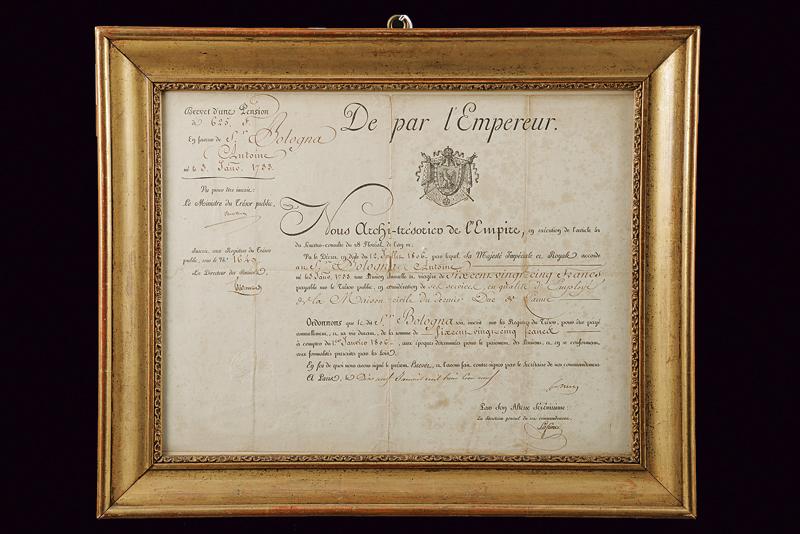 Brevet d'une Pension
de 625. F.
En faveur de S.r Bologna
Antoine
né le 3. Janv. 1733.
Vu pour être inscrit:
Le Ministre du Trésor public,
Inscrit aux Registres du Trésor
public, sous le N.o 1649
Le Directeur des
De par l'Empereur.
Nous Archi-trésorier de l'Empire, en exécution de l'article
du Sénatus-consulte du 28 Floréal de l'an 12:
Vu le Décret en date du 12. Juillet 1806, par lequel Sa Majesté Impériale et Royale accorde
au S.r Bologna Antoine
né le 3. Janv. 1733 une Pension annuelle et viagère de Six cent vingt cinq francs
payable sur le Trésor public, en considération de ses services en qualité d'Employé
de la Maison civile du dernier Duc de
Ordonnons que le dit S.r Bologna soit inscrit sur les Registres du Trésor, pour être payé
annuellement, et sa vie durant, de la somme de Six cent vingt cinq francs
à compter du 1.er Janvier 1806, aux époques déterminées pour le paiement des Pensions, et en se conformant
aux formalités prescrites par les lois.
En foi de quoi nous avons signé le présent Brevet, et l'avons fait contre-signer par le Secrétaire de nos commandemens
A Paris, le
Par Son Altesse Sérénissime:
Le Secrétaire général de ses commandemens